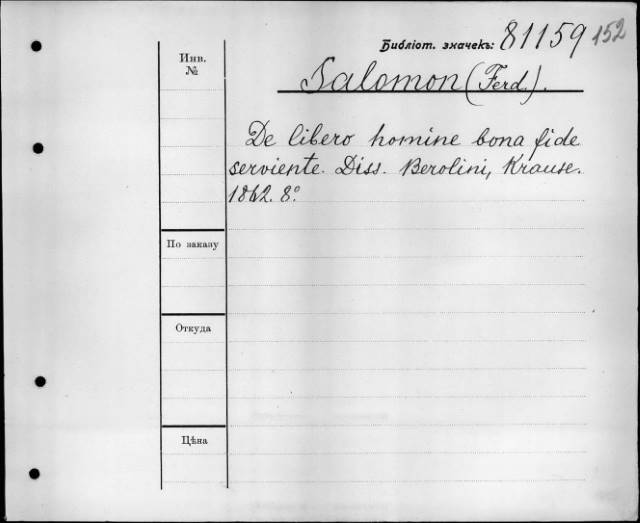 Библіот. значекъ: 81159 152
Инв.
№
Salomon (Ferd.).
De libero homine bona fide
serviente. Diss. Berolini, Krause.
1862. 8º
По заказу
Откуда
Цѣна